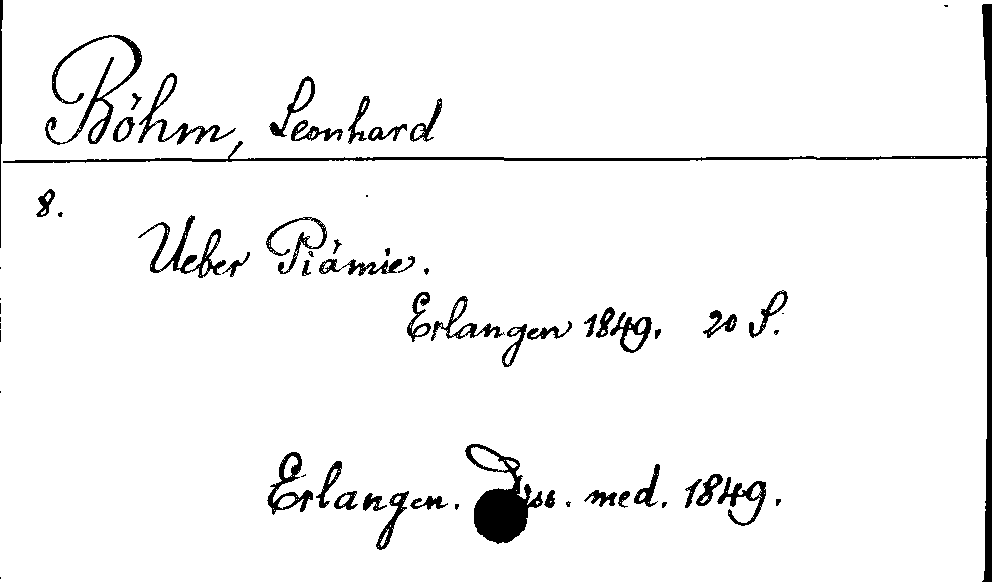 Böhm, Leonhard
8.
Ueber Piämie.
Erlangen 1849. 20 S.
Erlangen. Diss. med. 1849.